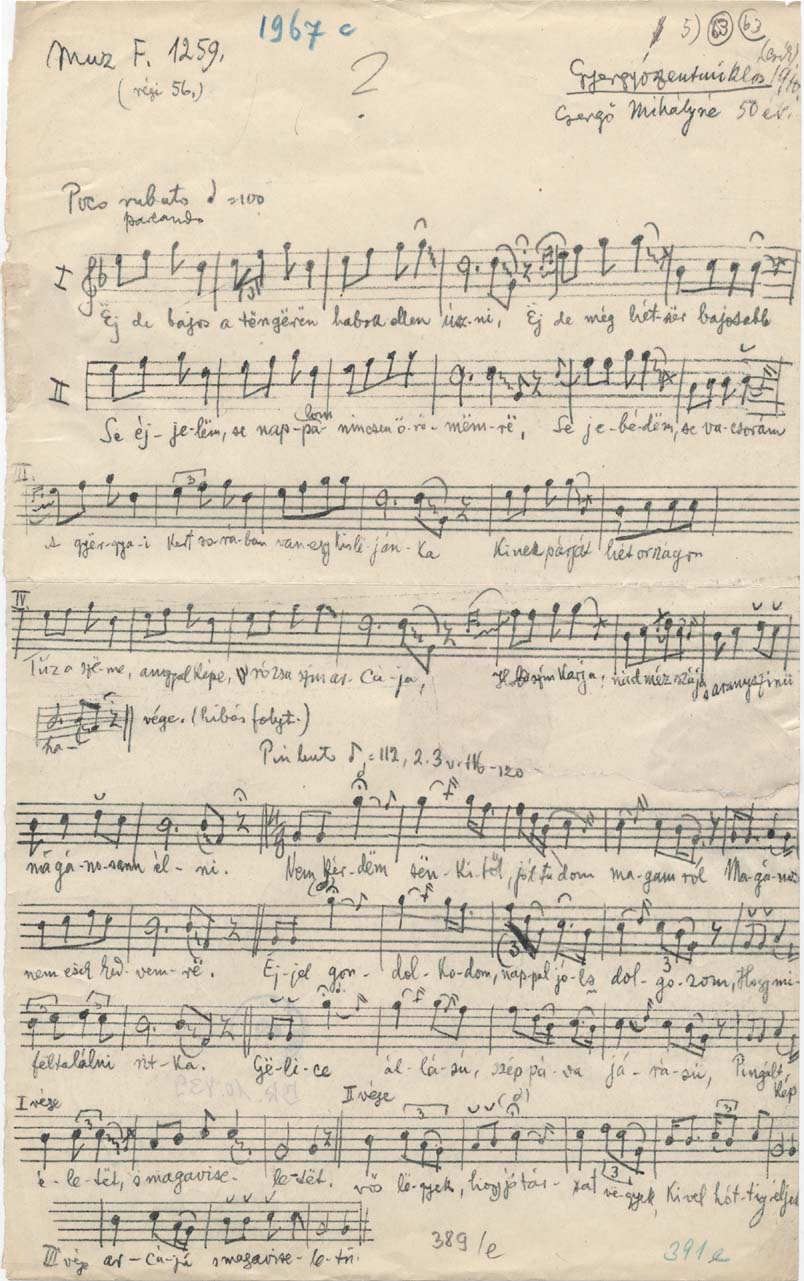 1967 c
5) 63 63
Muz F. 1259.
(régi 56.)
?
Gyergyószentmiklós
Csergő Mihályné 50 év.
Poco rubato = 100
parlando
I
Ëj de bajos a tëngërën habok ellen úsz-ni, Ëj de még hét-szër bajosabb
II
Se éj-je-lëm, se nap-pa- nincsen ö-rö-mëm-rë, Se je-bé-dëm, se va-csorám
lom
III
A gyër-gya-i kert so-rá-ban van egy kis lë-ján-ka Kinek párját hét országon
IV
Tűz a szë-me, angyal képe, rózsa szin ar-cá-ja, karja, nád méz szája s aranyszinü
ha- vége. (hibás folyt.)
Più lento = 112, 2. 3 v. 116-120
magá-no-sann él-ni. Nem kér-dëm sën-ki-től, jól tudom ma-gam-ról Ma-gá-nos
nem esik ked-vem-rë. Éj-jel gon-dol-ko-dom, nap-pal jo-ls dol-go-zom, Hogy mi-
feltalálni rit-ka. Gë-li-ce ál-lá-sú, szép pá-va já-rá-sú, Pingált
kép
I vége
II vége
é-le-tët, s magavise-le-tët. vős lë-gyek, hogy jó tár-sat ve-gyek, Kivel hól-tig éljek
III vég ar-cá-ja s magavise-le-tü.
389/e
391 e